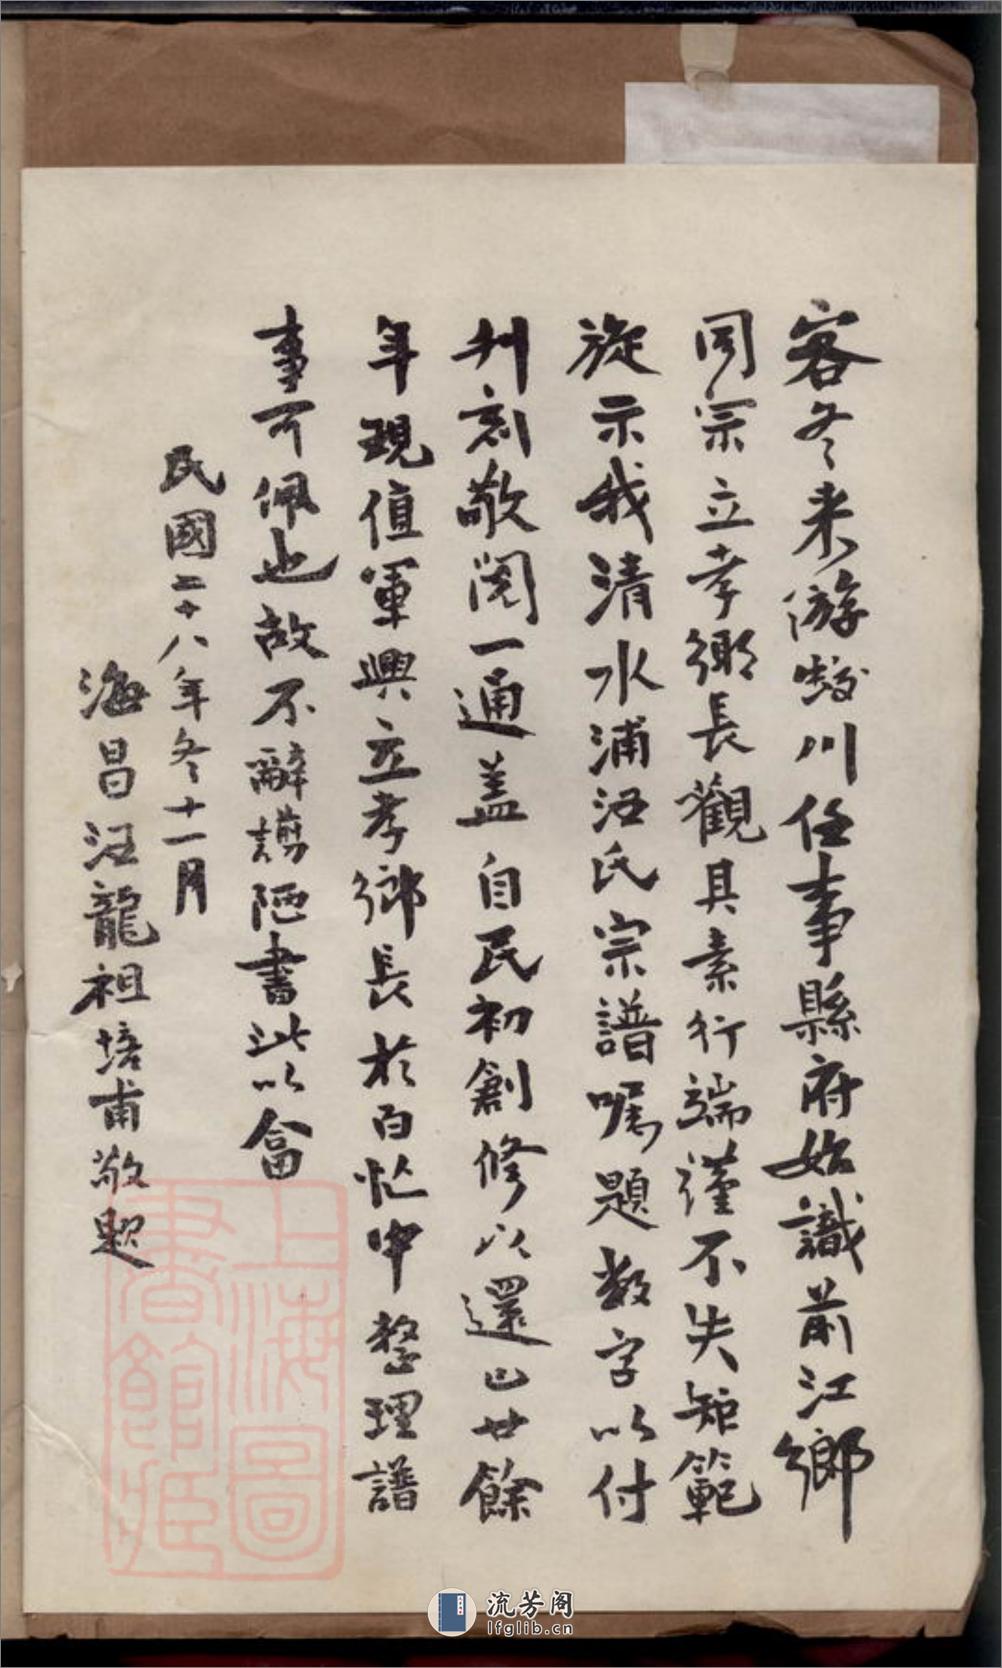 客冬来游蛟川任事縣府始識前江鄉
同宗立孝鄉長觀其素行端謹不失矩範
旋示我清水浦汪氏宗譜嘱題数字以付
刊刻敬閱一通盖自民初創修以還已廿餘
年現值軍興立孝鄉長於百忙中整理譜
事可佩也故不辭譾陋書此以畣
民國二十八年冬十一月
海昌汪龍祖培甫敬題
上海圖
書館藏
流芳阁
lfglib.cn